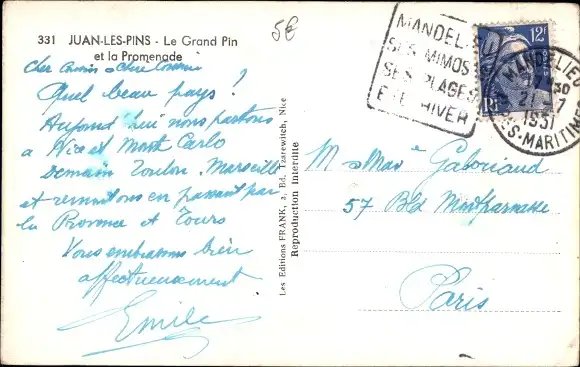 331 JUAN-LES-PINS - Le Grand Pin
et la Promenade
5€
Cher cousin chère cousine
Quel beau pays !
Aujourd'hui nous partons
à Nice et Monte Carlo
Demain Toulon, Marseille
et remontons en passant par
la Provence et Tours
Vous embrassons bien
affectueusement
Emile
Les Editions FRANK, 2, Bd. Tzarewitch, Nice
Reproduction Interdite
MANDELIEU
SES MIMOSAS
SES PLAGES
ETE HIVER
12F
RF
MANDELIEU
1951
ES-MARITIMES
M & Mme Gabouaud
57 Bld Montparnasse
Paris